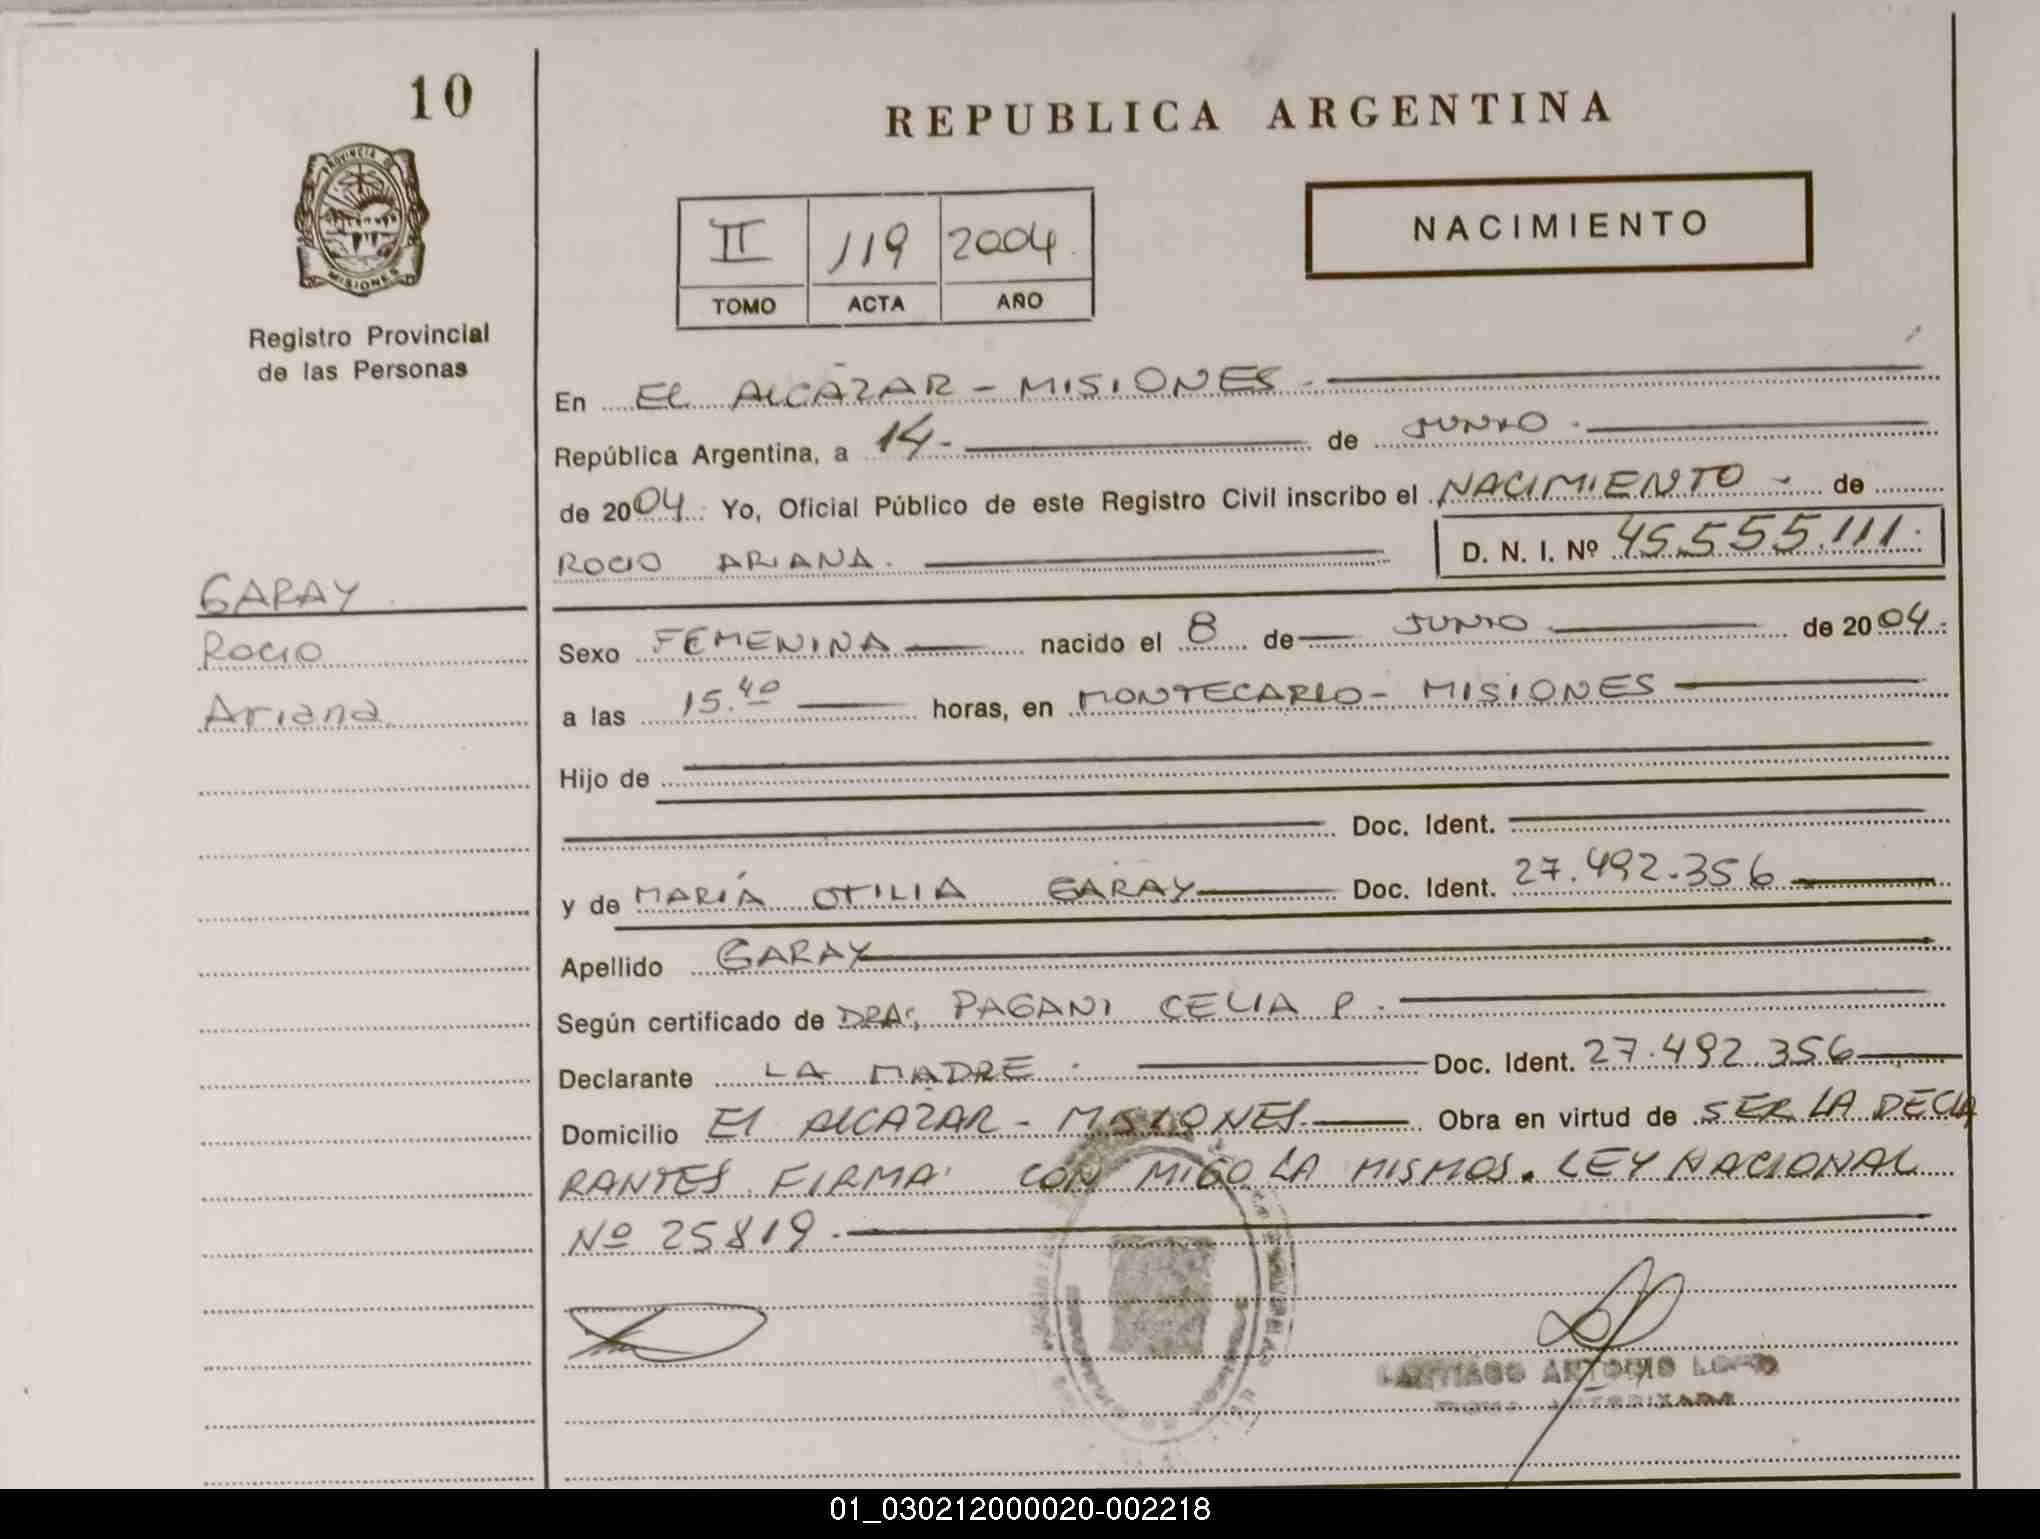 10
REPUBLICA ARGENTINA
PROVINCIA DE
MISIONES
Registro Provincial
de las Personas
II 119 2004.
TOMO ACTA AÑO
NACIMIENTO
En EL ALCÁZAR - MISIONES -
República Argentina, a 14- de JUNIO.
de 2004. Yo, Oficial Público de este Registro Civil inscribo el NACIMIENTO - de
ROCIO ARIANA. D. N. I. Nº 45.555.111.
GARAY
Rocio
Ariana
Sexo FEMENINA nacido el 8 de JUNIO de 2004.
a las 15.40 horas, en MONTECARLO - MISIONES
Hijo de
Doc. Ident.
y de MARÍA OTILIA GARAY Doc. Ident. 27.492.356
Apellido GARAY
Según certificado de DRA: PAGANI CELIA P.
Declarante LA MADRE. Doc. Ident. 27.492.356
Domicilio El ALCAZAR - MISIONES. Obra en virtud de SER LA DECLA
RANTES FIRMA CON MIGO LA MISMOS. LEY NACIONAL
Nº 25819.
SANTIAGO ANTONIO
AUTORIZADA
01_030212000020-002218